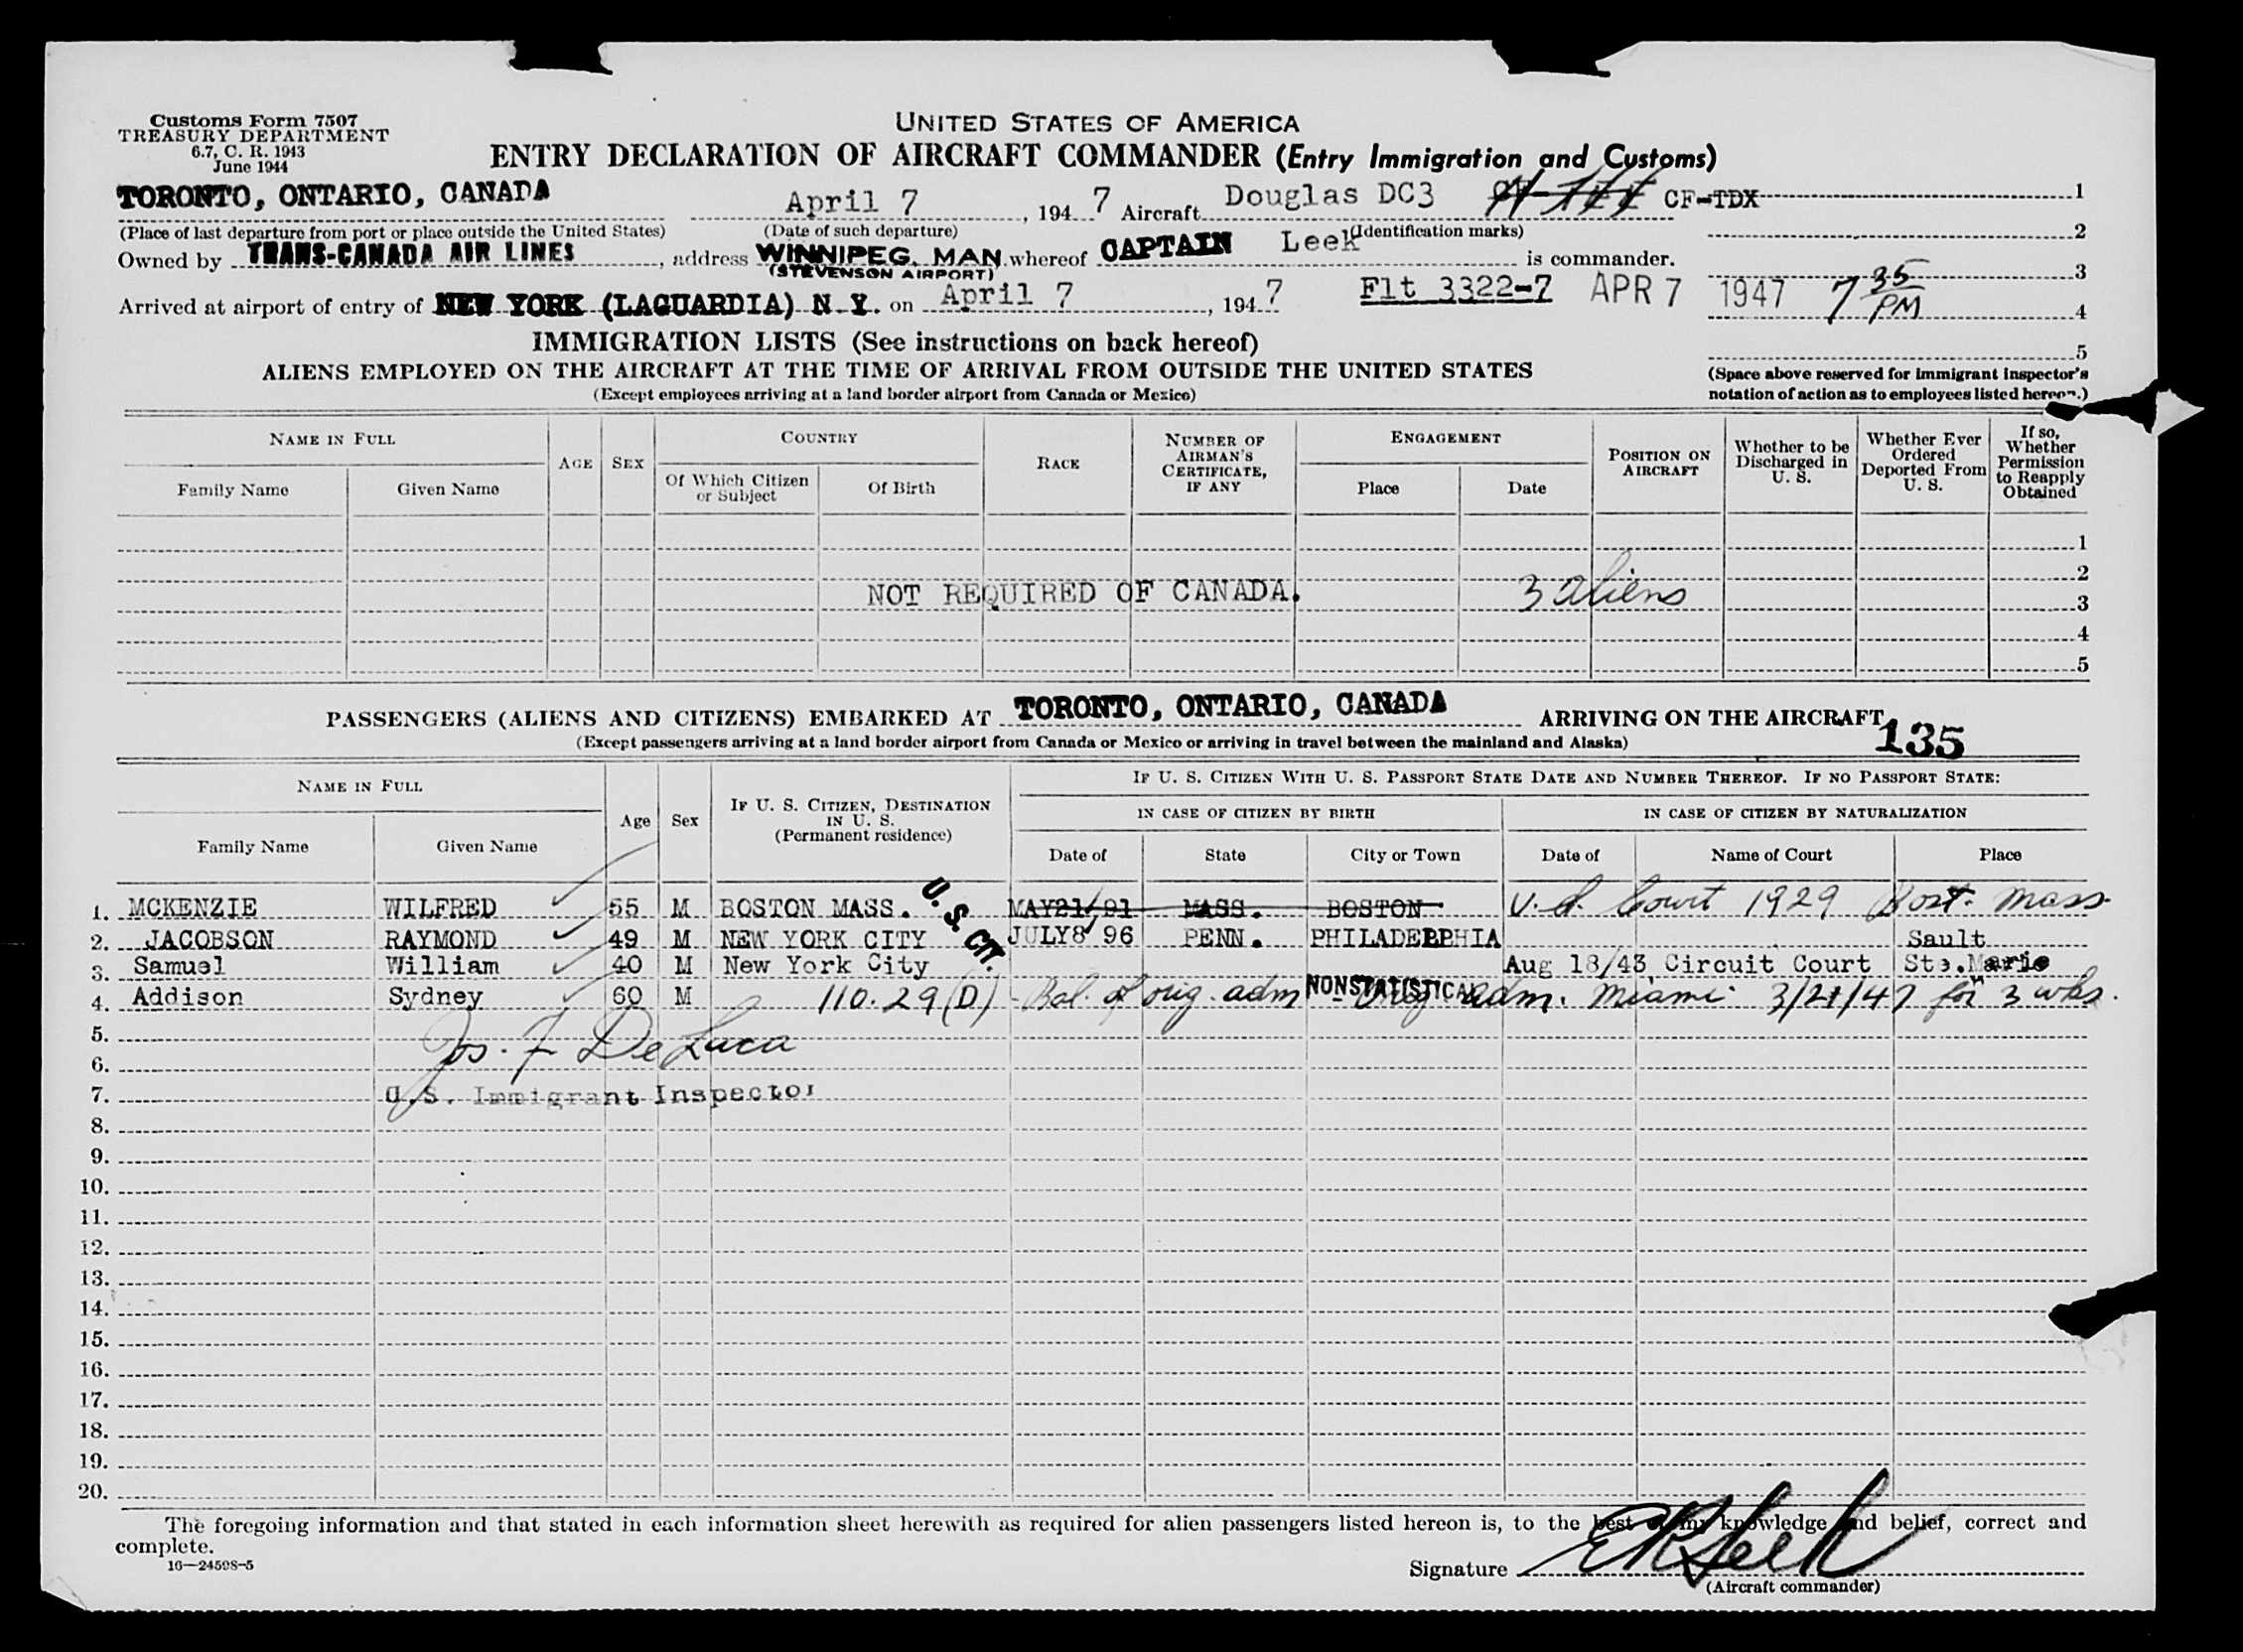 Customs Form 7507
TREASURY DEPARTMENT
6.7, C. R. 1943
June 1944
UNITED STATES OF AMERICA
ENTRY DECLARATION OF AIRCRAFT COMMANDER (Entry Immigration and Customs)
TORONTO, ONTARIO, CANADA April 7, 1947 Aircraft Douglas DC3 CF-TDX 1
(Place of last departure from port or place outside the United States) (Date of such departure) (Identification marks) 2
Owned by TRANS-CANADA AIR LINES, address WINNIPEG, MAN. whereof CAPTAIN Leek is commander.
(STEVENSON AIRPORT) 3
Arrived at airport of entry of NEW YORK (LAGUARDIA) N. Y. on April 7, 1947 Flt 3322-7 APR 7 1947 7 35 PM 4
IMMIGRATION LISTS (See instructions on back hereof) 5
ALIENS EMPLOYED ON THE AIRCRAFT AT THE TIME OF ARRIVAL FROM OUTSIDE THE UNITED STATES
(Except employees arriving at a land border airport from Canada or Mexico)
(Space above reserved for immigrant inspector's
notation of action as to employees listed hereon.)
NAME IN FULL
Family Name Given Name
AGE SEX
COUNTRY
Of Which Citizen or Subject Of Birth
RACE
NUMBER OF AIRMAN'S CERTIFICATE, IF ANY
ENGAGEMENT
Place Date
POSITION ON AIRCRAFT
Whether to be Discharged in U. S.
Whether Ever Ordered Deported From U. S.
If so, Whether Permission to Reapply Obtained
1
2
NOT REQUIRED OF CANADA. 3 aliens 3
4
5
PASSENGERS (ALIENS AND CITIZENS) EMBARKED AT TORONTO, ONTARIO, CANADA ARRIVING ON THE AIRCRAFT
(Except passengers arriving at a land border airport from Canada or Mexico or arriving in travel between the mainland and Alaska) 135
NAME IN FULL
Family Name Given Name
Age Sex
IF U. S. CITIZEN, DESTINATION IN U. S. (Permanent residence)
IF U. S. CITIZEN WITH U. S. PASSPORT STATE DATE AND NUMBER THEREOF. IF NO PASSPORT STATE:
IN CASE OF CITIZEN BY BIRTH IN CASE OF CITIZEN BY NATURALIZATION
Date of State City or Town Date of Name of Court Place
1. MCKENZIE WILFRED 55 M BOSTON MASS. MAY21/91 MASS. BOSTON U.S. Court 1929 Bost. Mass.
U.S. CIT.
2. JACOBSON RAYMOND 49 M NEW YORK CITY JULY8 96 PENN. PHILADELPHIA
3. Samuel William 40 M New York City Aug 18/43 Circuit Court Sault Ste. Marie
4. Addison Sydney 60 M 110.29 (D) Bal. of orig. adm NONSTATISTICAL Orig adm. Miami 3/21/47 for 3 wks.
5.
Jos. F DeLuca
6.
7. U.S. Immigrant Inspector
8.
9.
10.
11.
12.
13.
14.
15.
16.
17.
18.
19.
20.
The foregoing information and that stated in each information sheet herewith as required for alien passengers listed hereon is, to the best of my knowledge and belief, correct and
complete.
16—24598-5
Signature E R Leek
(Aircraft commander)